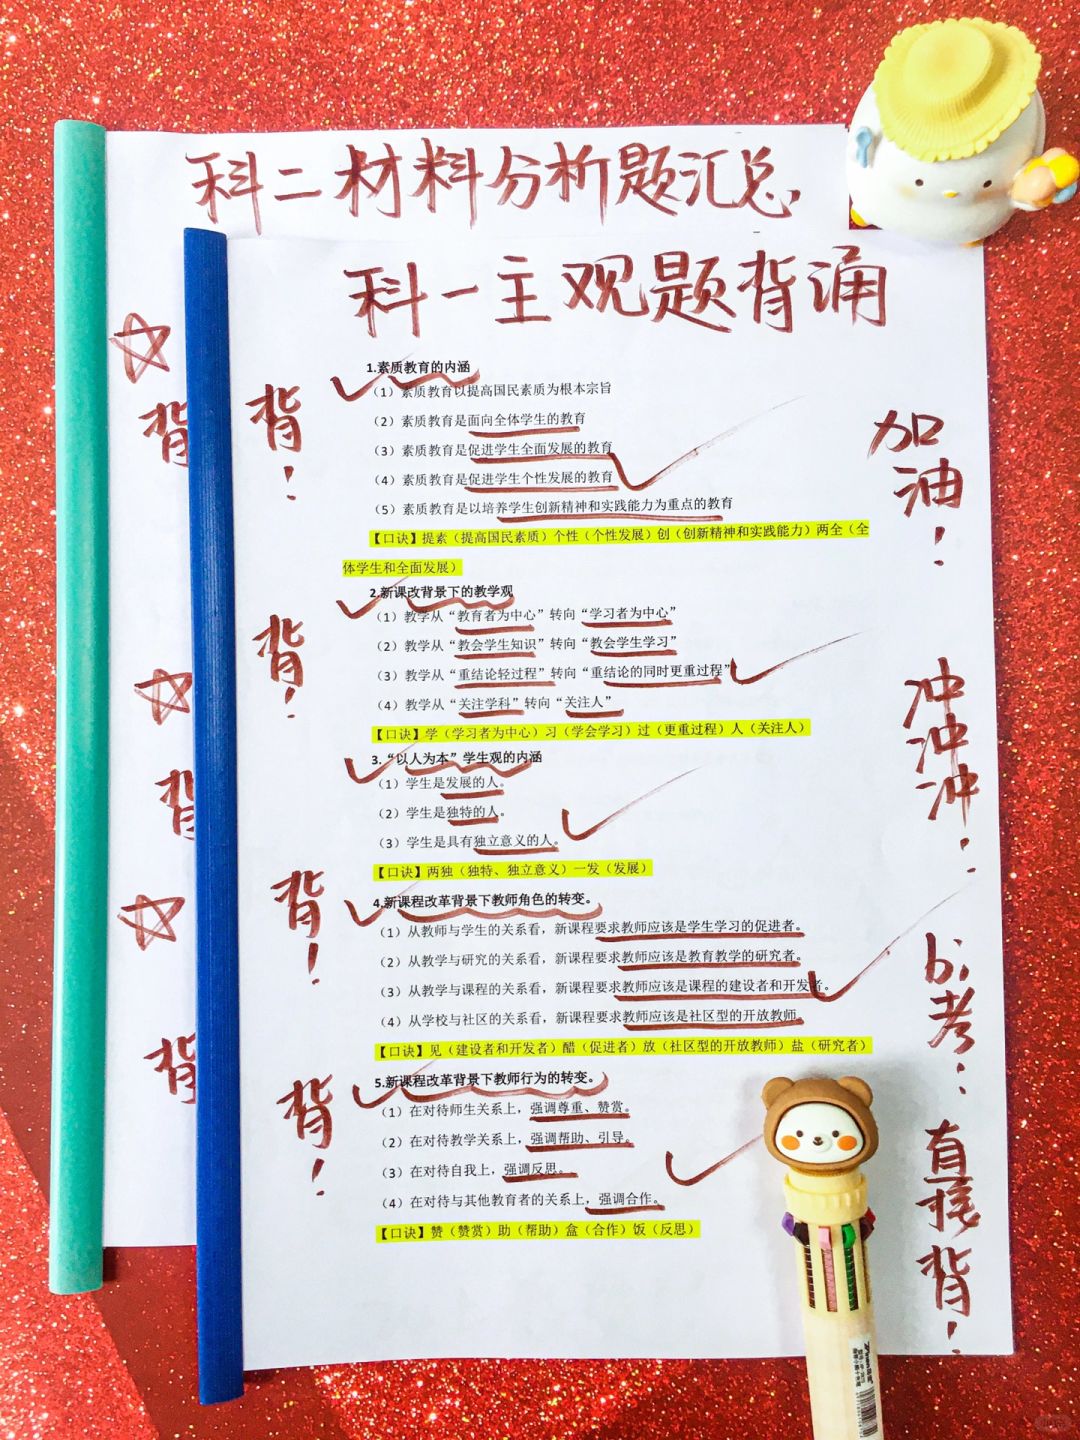 科二材料分析题汇总
科一主观题背诵
1.素质教育的内涵
（1）素质教育以提高国民素质为根本宗旨
（2）素质教育是面向全体学生的教育
（3）素质教育是促进学生全面发展的教育
（4）素质教育是促进学生个性发展的教育
（5）素质教育是以培养学生创新精神和实践能力为重点的教育
【口诀】提素（提高国民素质）个性（个性发展）创（创新精神和实践能力）两全（全
体学生和全面发展）
2.新课改背景下的教学观
（1）教学从“教育者为中心”转向“学习者为中心”
（2）教学从“教会学生知识”转向“教会学生学习”
（3）教学从“重结论轻过程”转向“重结论的同时更重过程”
（4）教学从“关注学科”转向“关注人”
【口诀】学（学习者为中心）习（学会学习）过（更重过程）人（关注人）
3.“以人为本”学生观的内涵
（1）学生是发展的人。
（2）学生是独特的人。
（3）学生是具有独立意义的人。
【口诀】两独（独特、独立意义）一发（发展）
4.新课程改革背景下教师角色的转变。
（1）从教师与学生的关系看，新课程要求教师应该是学生学习的促进者。
（2）从教学与研究的关系看，新课程要求教师应该是教育教学的研究者。
（3）从教学与课程的关系看，新课程要求教师应该是课程的建设者和开发者。
（4）从学校与社区的关系看，新课程要求教师应该是社区型的开放教师。
【口诀】见（建设者和开发者）醋（促进者）放（社区型的开放教师）盐（研究者）
5.新课程改革背景下教师行为的转变。
（1）在对待师生关系上，强调尊重、赞赏。
（2）在对待教学关系上，强调帮助、引导。
（3）在对待自我上，强调反思。
（4）在对待与其他教育者的关系上，强调合作。
【口诀】赞（赞赏）助（帮助）盒（合作）饭（反思）
背！
背！
背！
背！
背
背
背
加油！
冲冲冲！
bi考！
直接背！